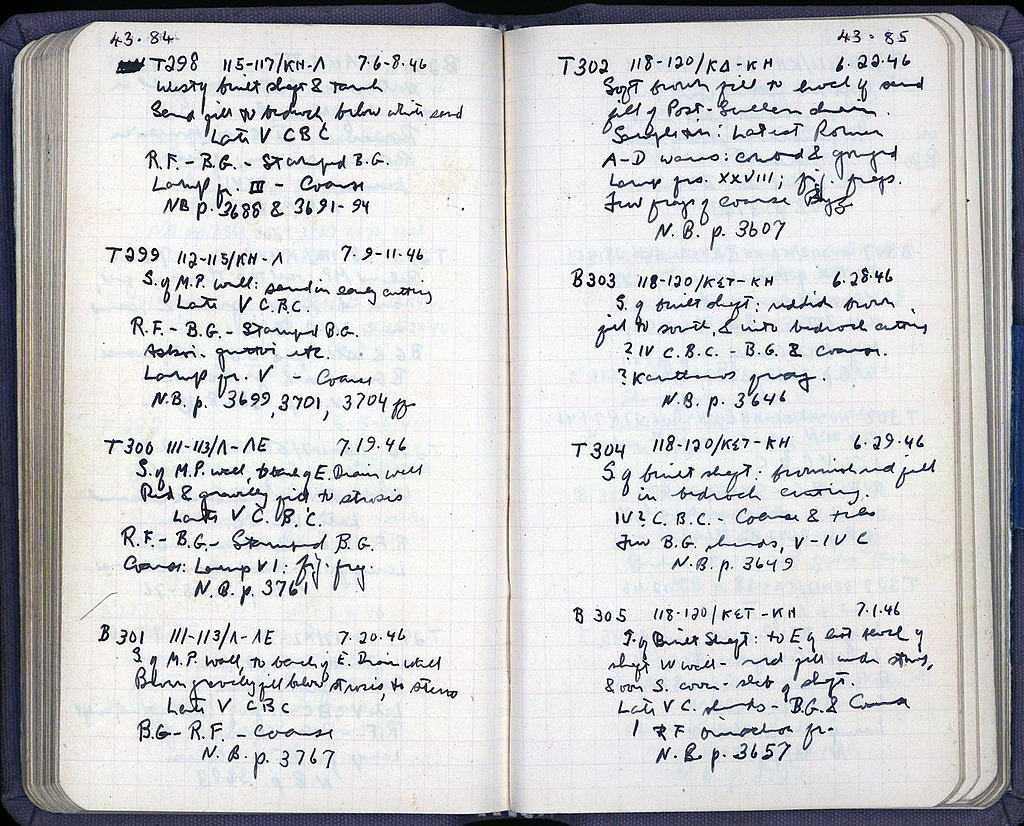 43·84
T298 115-117/ΚΗ-Λ 7·6-8·46
West of built shaft & tank
Sand fill to bedrock below white sand
Late V C B C
R.F. - B.G. - Stamped B.G.
Lamp fr. III - Coarse
NB p. 3688 & 3691-94
T299 112-115/ΚΗ-Λ 7·9-11·46
S. of M.P. wall: sand in early cutting
Late V C.B.C.
R.F. - B.G. - Stamped B.G.
Askoi, guttoi etc
Lamp fr. V - Coarse
N.B. p. 3699, 3701, 3704 ff
T300 111-113/Λ-ΛΕ 7.19.46
S. of M.P. wall, to back of E. Drain wall
Red & gravelly fill to strosis
Late V C. B.C.
R.F. - B.G. - Stamped B.G.
Coarse: Lamp VI: fig. frg.
N.B. p. 3761
B 301 111-113/Λ-ΛΕ 7.20.46
S. of M.P. wall, to back of E. Drain wall
Brown gravelly fill below strosis, to stereo
Late V C B C
B.G - R.F. - Coarse
N.B. p. 3767
43·85
T302 118-120/ΚΔ-ΚΗ 6.22.46
Soft brown fill to level of sand
fill of Post-Sullan drain.
Sample tin: Latest Roman
A-D wares: combed & gouged
Lamp frs. XXVIII; fig. frags.
Few frags of coarse Byz
N.B. p. 3607
B303 118-120/ΚΣΤ-ΚΗ 6.28.46
S. of built shaft: reddish brown
fill to south, & into bedrock cutting
? IV C.B.C. - B.G. & Coarse.
? Kantharos frag.
N.B. p. 3646
T304 118-120/ΚΣΤ-ΚΗ 6.29.46
S of built shaft: brownish red fill
in bedrock cutting.
IV? C.B.C. - Coarse & tiles
Few B.G. sherds, V-IV C
N.B. p. 3649
B 305 118-120/ΚΣΤ-ΚΗ 7.1.46
S. of Built Shaft: to E of last level of
shaft W wall - red fill under
& over S. cover-slab of shaft.
Late V C. sherds - B.G. & Coarse
1 R F oinochoe fr.
N.B. p. 3657